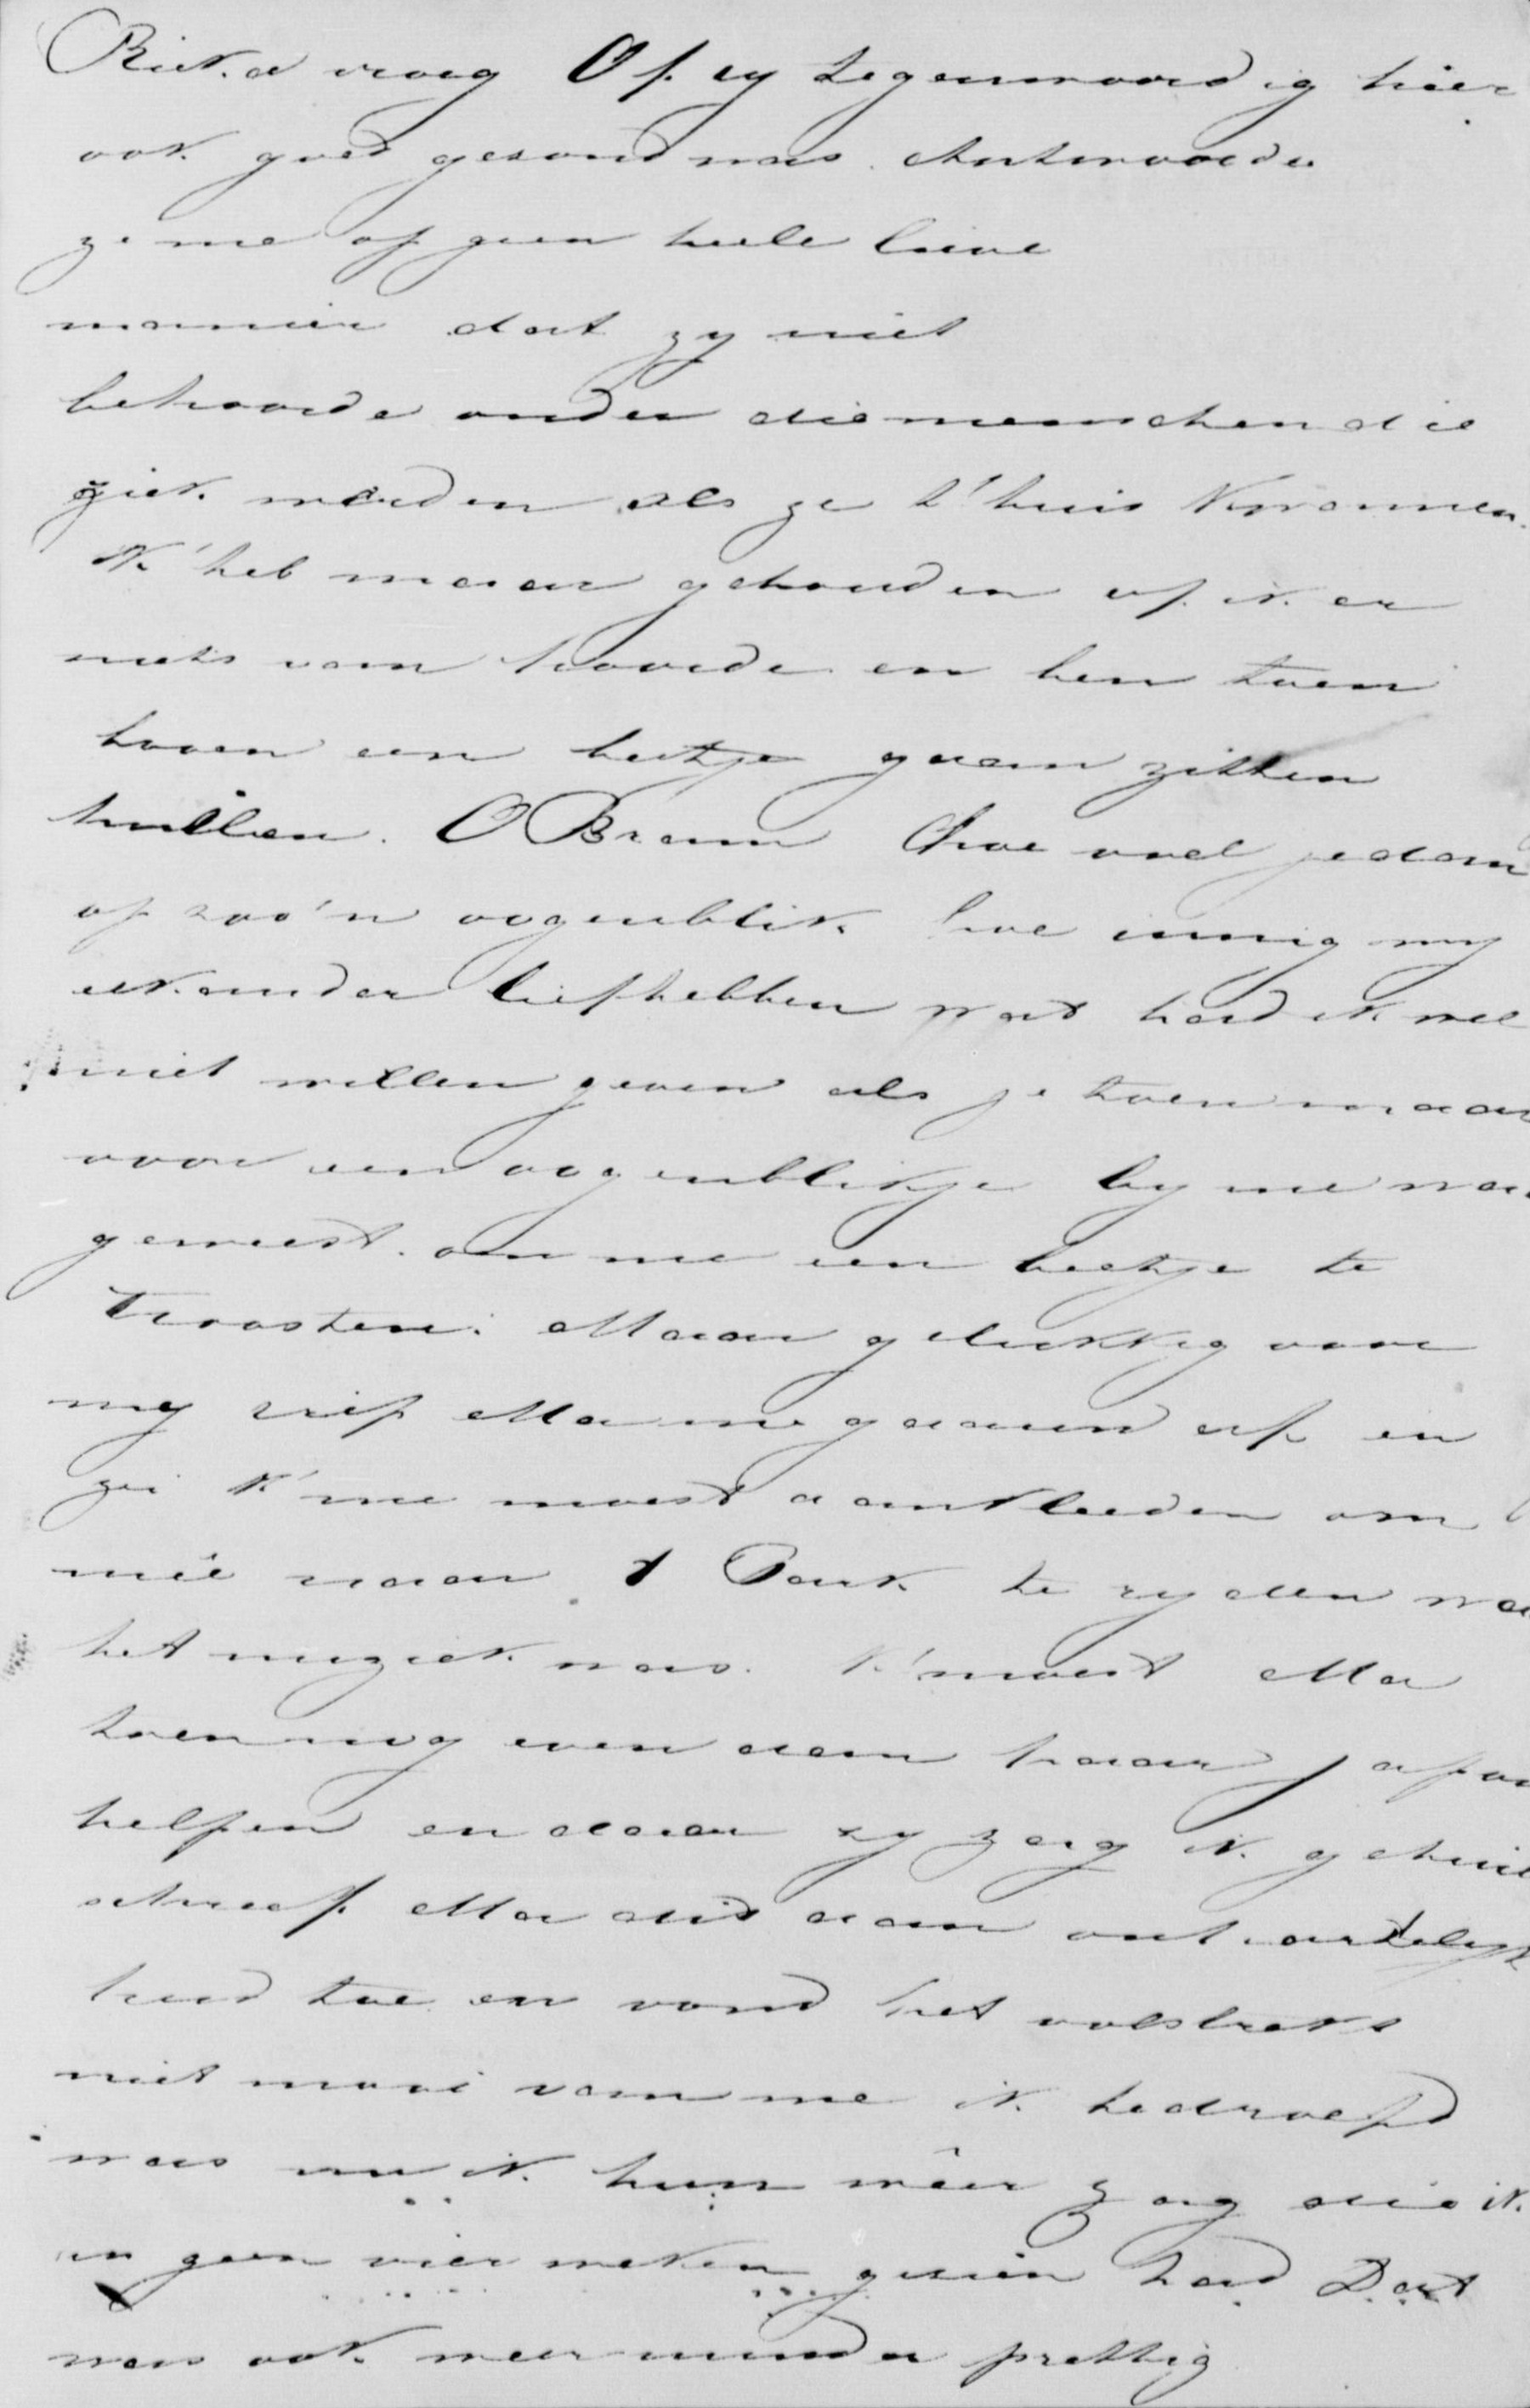 Riek.a vroeg Of zy tegenwoordig hier
ook goed gezond was. Antwoorde
ze me op geen heele lieve
manier dat zy niet
behoorde onder die menschen die
ziek werden als ze t'huis kwamen.
K'heb maar gehouden of ik er
niets van hoorde en ben toen
boven een beetje gaan zitten
huilen. O Bram hoe voel je dan
op zoo'n oogenblik hoe innig wy
elkander liefhebben wat had ik wel
niet willen geven als je toen maar
voor een oogenblikje by me was
geweest om me een beetje te
troosten. Maar gelukkig voor
my riep Ma me gaauw af en
zei k'me moest aankleeden om
meê naar t Park te ryden waar
het muziek was. k'moest Ma
toen nog even aan haar japon
helpen en daar zy zag ik gehuild
schreef Ma dit aan onhartelyk
heid toe en vond het volstrekt
niet mooi van me ik bedroefd
was nu ik hun mêer zag die ik
in geen vier weken gezien had Dat
was ook weer minder prettig